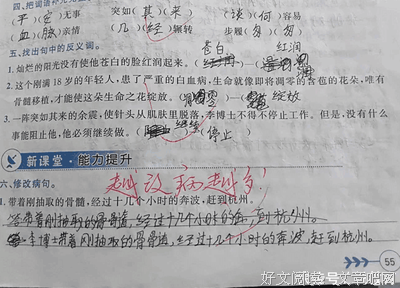 四、把词语补充完整
平(安)无事 突如(其)(来) (谈)(何)容易
(血)(脉)亲情 (几)(经)辗转 步履(匆)(匆)
五、找出句中的反义词。
苍白 红润
1.灿烂的阳光没有使他苍白的脸红润起来。( )—( )
2.这个刚满18岁的年轻人,患了严重的白血病,生命就像即将凋零的含苞的花朵,唯有
骨髓移植,才能使这朵生命之花绽放。(凋零)—( )绽放
3.一阵突如其来的余震,使针头从肌肤里脱落,李博士不得不停止工作。但是,没有什么
事能阻止他,他必须继续做。( 继续)—(停止)
新课堂·能力提升
越改病越多!
六、修改病句。
1.带着刚抽取的骨髓,经过十几个小时的奔波,赶到杭州。
带着刚抽取的骨骨道,经过十几个小时的 到杭州。
李博士带着刚抽取的骨骨道,经过十几个小时的奔波,赶到杭州。
55
好文